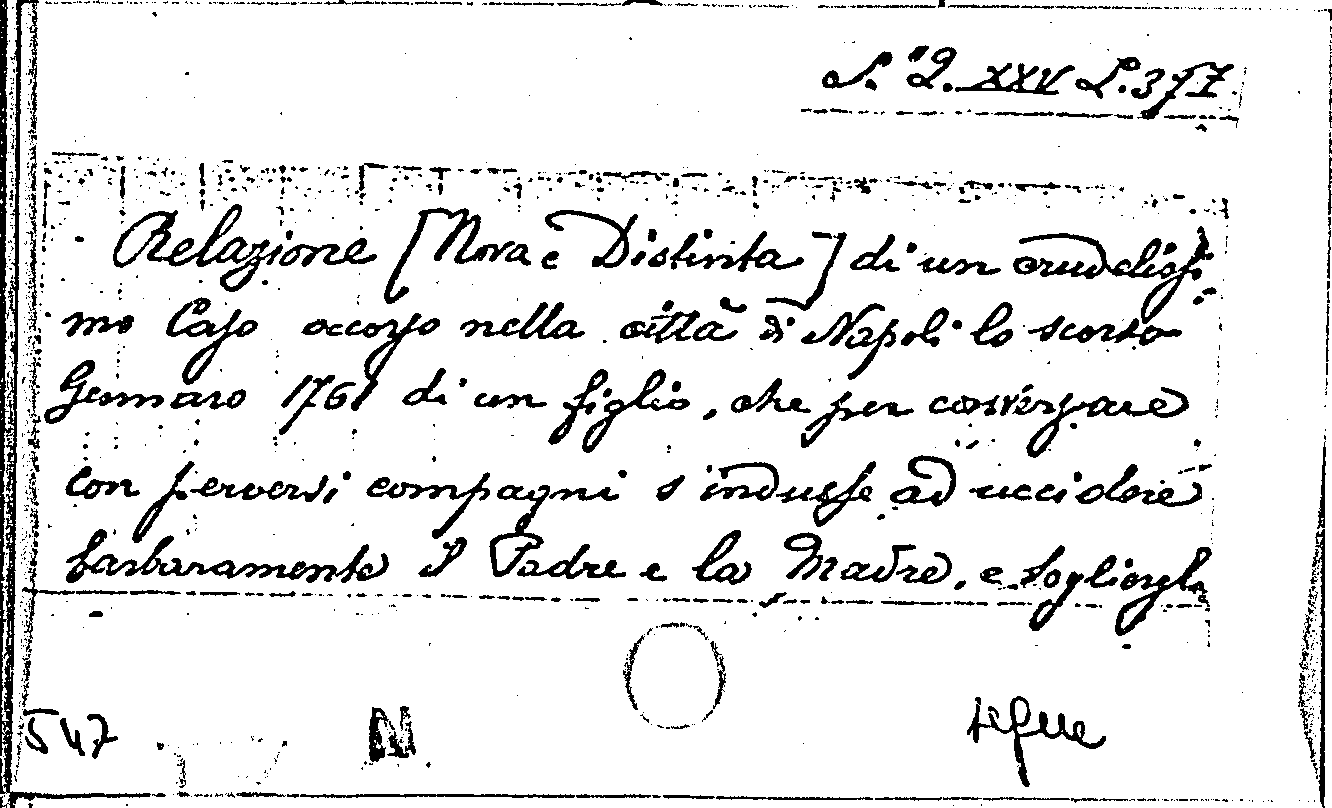 S. Q. XXV L. 37
Relazione [Nova e Distinta] di un crudelissi
mo Caso occorso nella città di Napoli lo scorso
Gennaro 1761 di un figlio, che per conversare
con perversi compagni s'indusse ad uccidere
barbaramente il Padre e la Madre, e togliergl
547 N segue